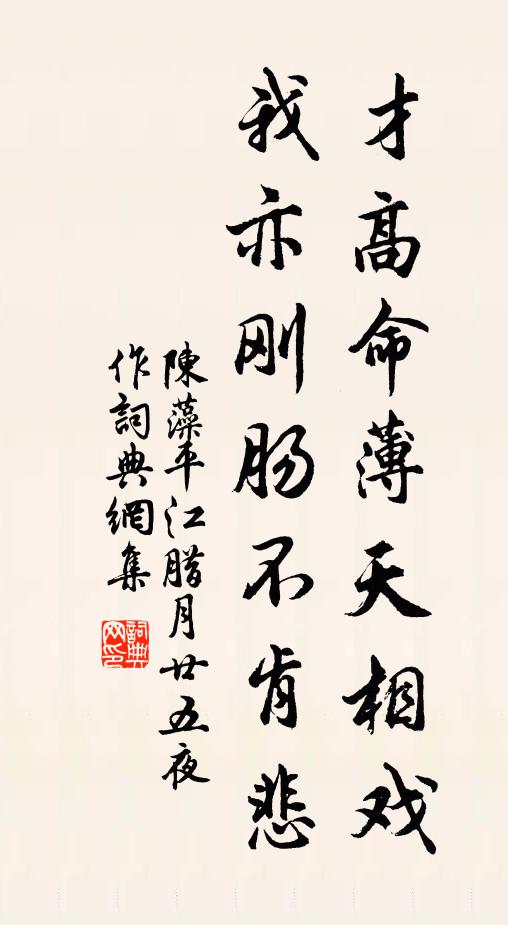 才高命薄天相戏
我亦刚肠不肯悲
陳藻平江腊月廿五夜
作詞典網集
詞典
网印